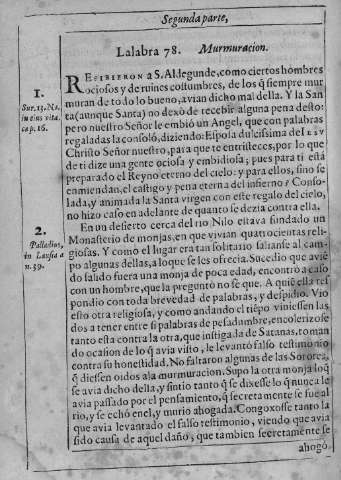 Segunda parte,
Lalabra 78. Murmuracion.
1.
Sur. 15. No.
in eius vita.
cap. 16.
REFIRIERON a S. Aldegunde, como ciertos hombres
ociosos y de ruines costumbres, de los q̃ siempre mur
muran de todo lo bueno, avian dicho mal della. Y la San
ta (aunque Santa) no dexò de recebir alguna pena desto:
pero nuestro Señor le embiò un Angel, que con palabras
regaladas la consolò, diziendo: Esposa dulcissima del
Christo Señor nuestro, para que te entristeces, por lo que
de ti dize una gente ociosa y embidiosa; pues para ti està
preparado el Reyno eterno del cielo: y para ellos, sino se
enmiendan, el castigo y pena eterna del infierno? Conso-
lada, y animada la Santa virgen con este regalo del cielo,
no hizo caso en adelante de quanto se dezia contra ella.
2.
Palladius,
in Lausia a
n. 39.
En un desierto cerca del rio Nilo estava fundado un
Monasterio de monjas, en que vivian quatrocientas reli-
giosas. Y como el lugar era tan solitario salianse al cam-
po algunas dellas, a lo que se les ofrecia. Sucedio que avie
do salido fuera una monja de poca edad, encontrò a caso
con un hombre, que la preguntò no se que. A quiē ella res
pondio con toda brevedad de palabras, y despidio. Vio
esto otra religiosa, y como andando el tiēpo viniessen las
dos a tener entre si palabras de pesadumbre, encolerizose
tanto esta contra la otra, que instigada de Satanas, toman
do ocasion de lo q̃ avia visto, le levantò falso testimonio
contra su honestidad. No faltaron algunas de las Sorores,
q̃ diessen oidos a la murmuracion. Supo la otra monja loq̃
se avia dicho della, y sintio tanto q̃ se dixesse lo q̃ nunca le
avia passado por el pensamiento, q̃ secretamente se fue al
rio, y se echò en el, y murio ahogada. Congoxose tanto la
que avia levantado el falso testimonio, viendo que avia
sido causa de aquel daño; que tambien secretamente se
ahogò.